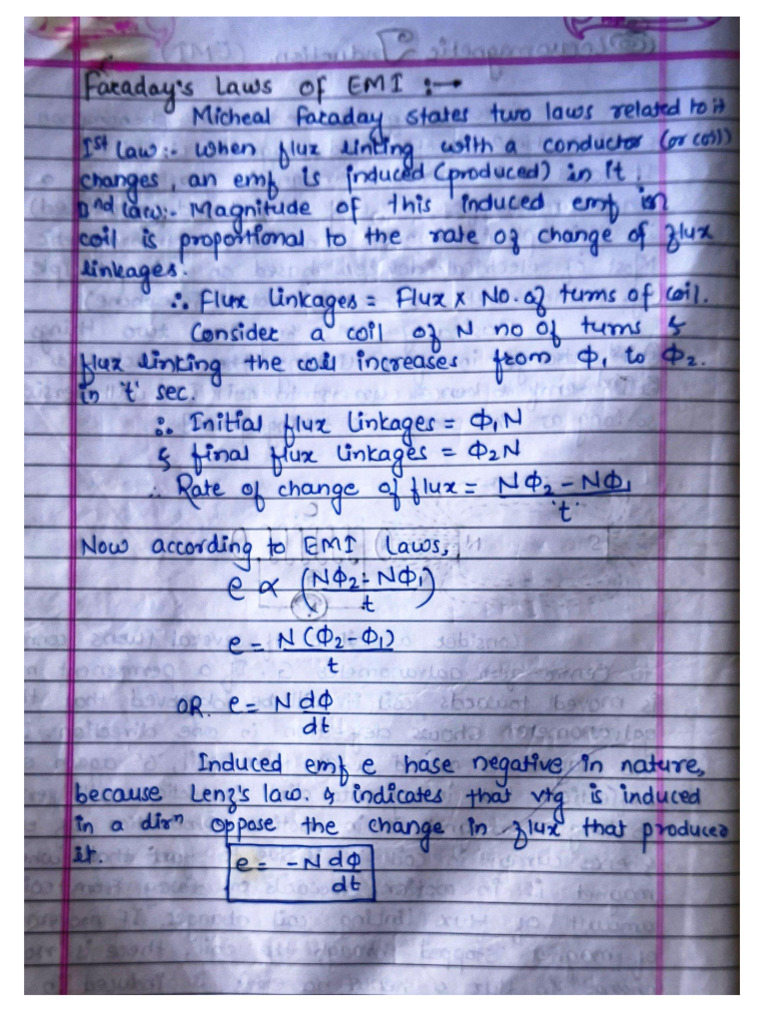 Faraday's Laws of EMI :→
Micheal Faraday states two laws related to it
Ist Law:- when flux linking with a conductor (or coil)
changes, an emf is induced (produced) in it.
IInd law:- Magnitude of this induced emf in
coil is proportional to the rate of change of flux
linkages.
∴ Flux linkages = Flux x No. of turns of coil.
Consider a coil of N no of turns &
flux linking the coil increases from Φ₁ to Φ₂.
in 't' sec.
∴ Initial flux linkages = Φ₁N
& final flux linkages = Φ₂N
∴ Rate of change of flux = NΦ₂ - NΦ₁ / 't'
Now according to EMI laws,
e ∝ (NΦ₂ - NΦ₁ / t)
e = N (Φ₂-Φ₁) / t
OR. e = N dΦ / dt
Induced emf e hase negative in nature,
because Lenz's law. & indicates that vtg is induced
in a dirⁿ oppose the change in flux that produced
it.
e = -N dΦ / dt